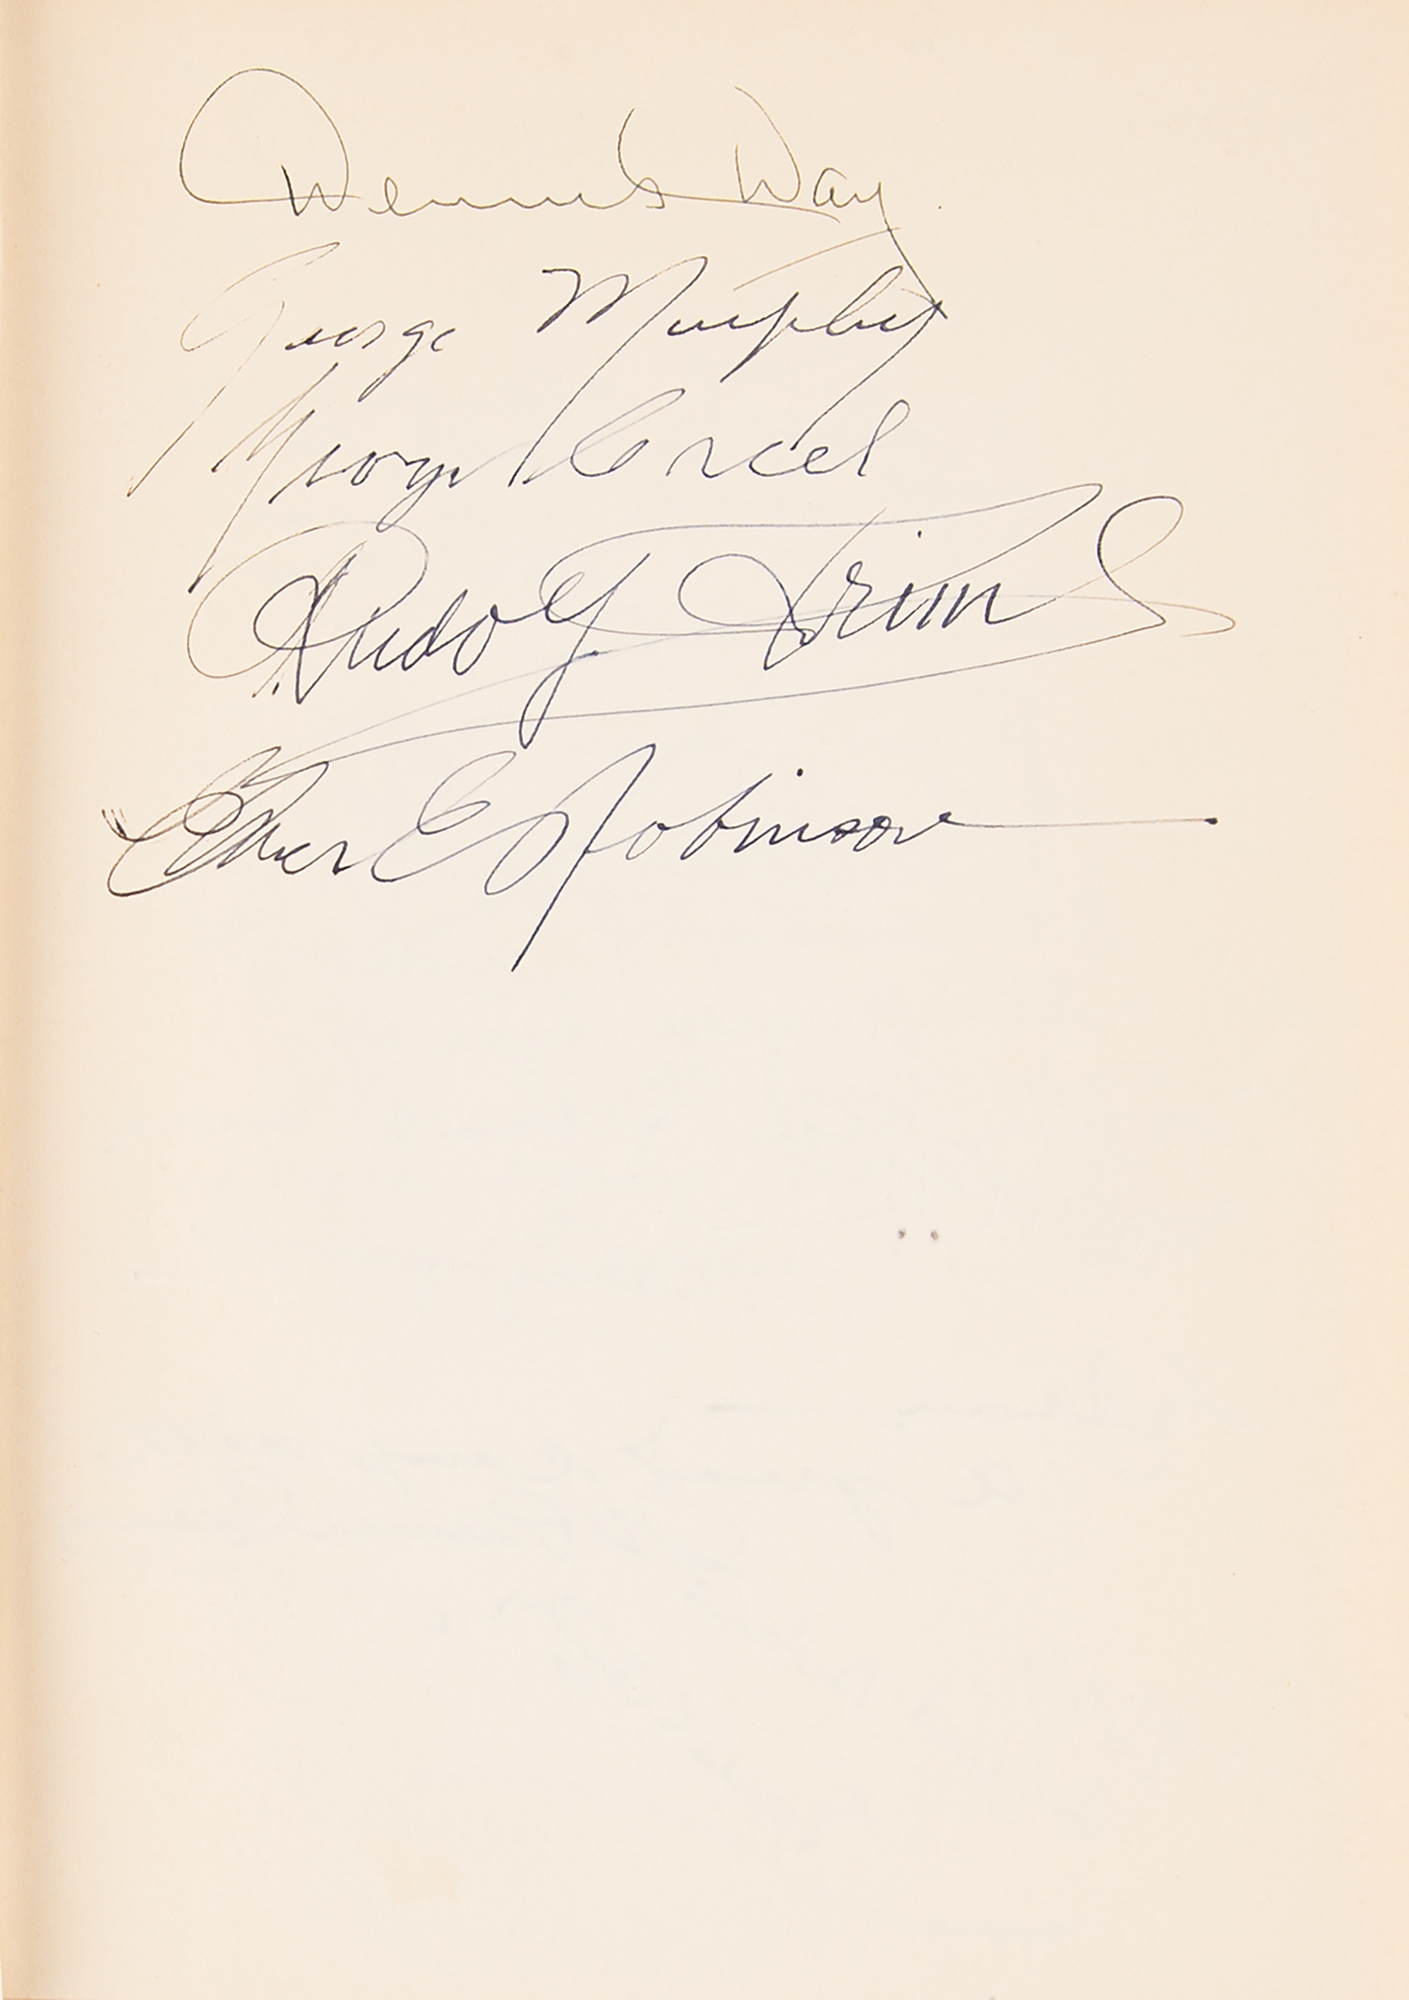 Dennis Day
George Murphy
George Creel
Rudolf Friml
Elmer E Robinson